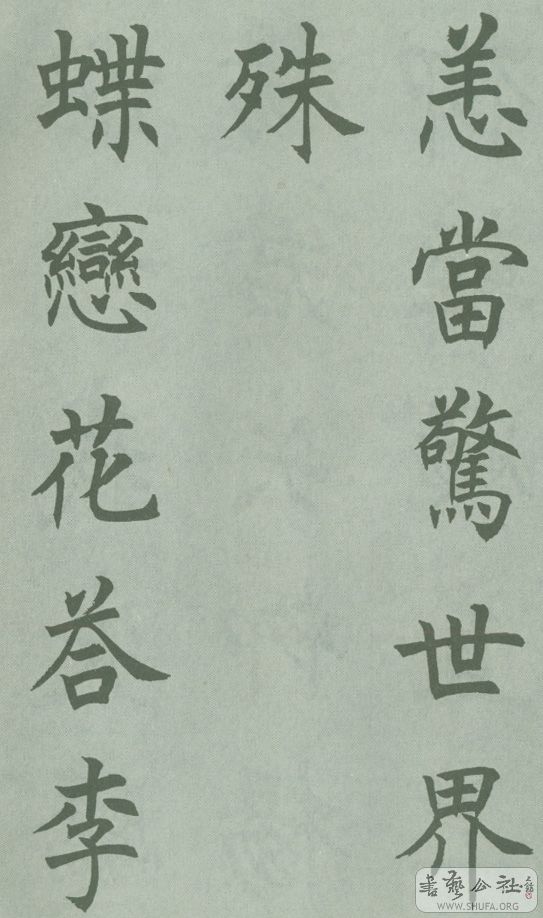 恙當驚世界
殊
蝶戀花荅李
書藝公社
WWW.SHUFA.ORG